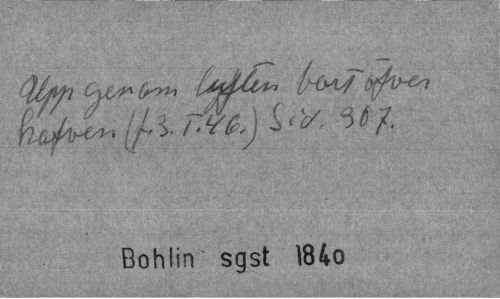 Upp genom luften bort öfver
hafven (f. 3. T. 46.) Sid. 307.
Bohlin sgst 1840